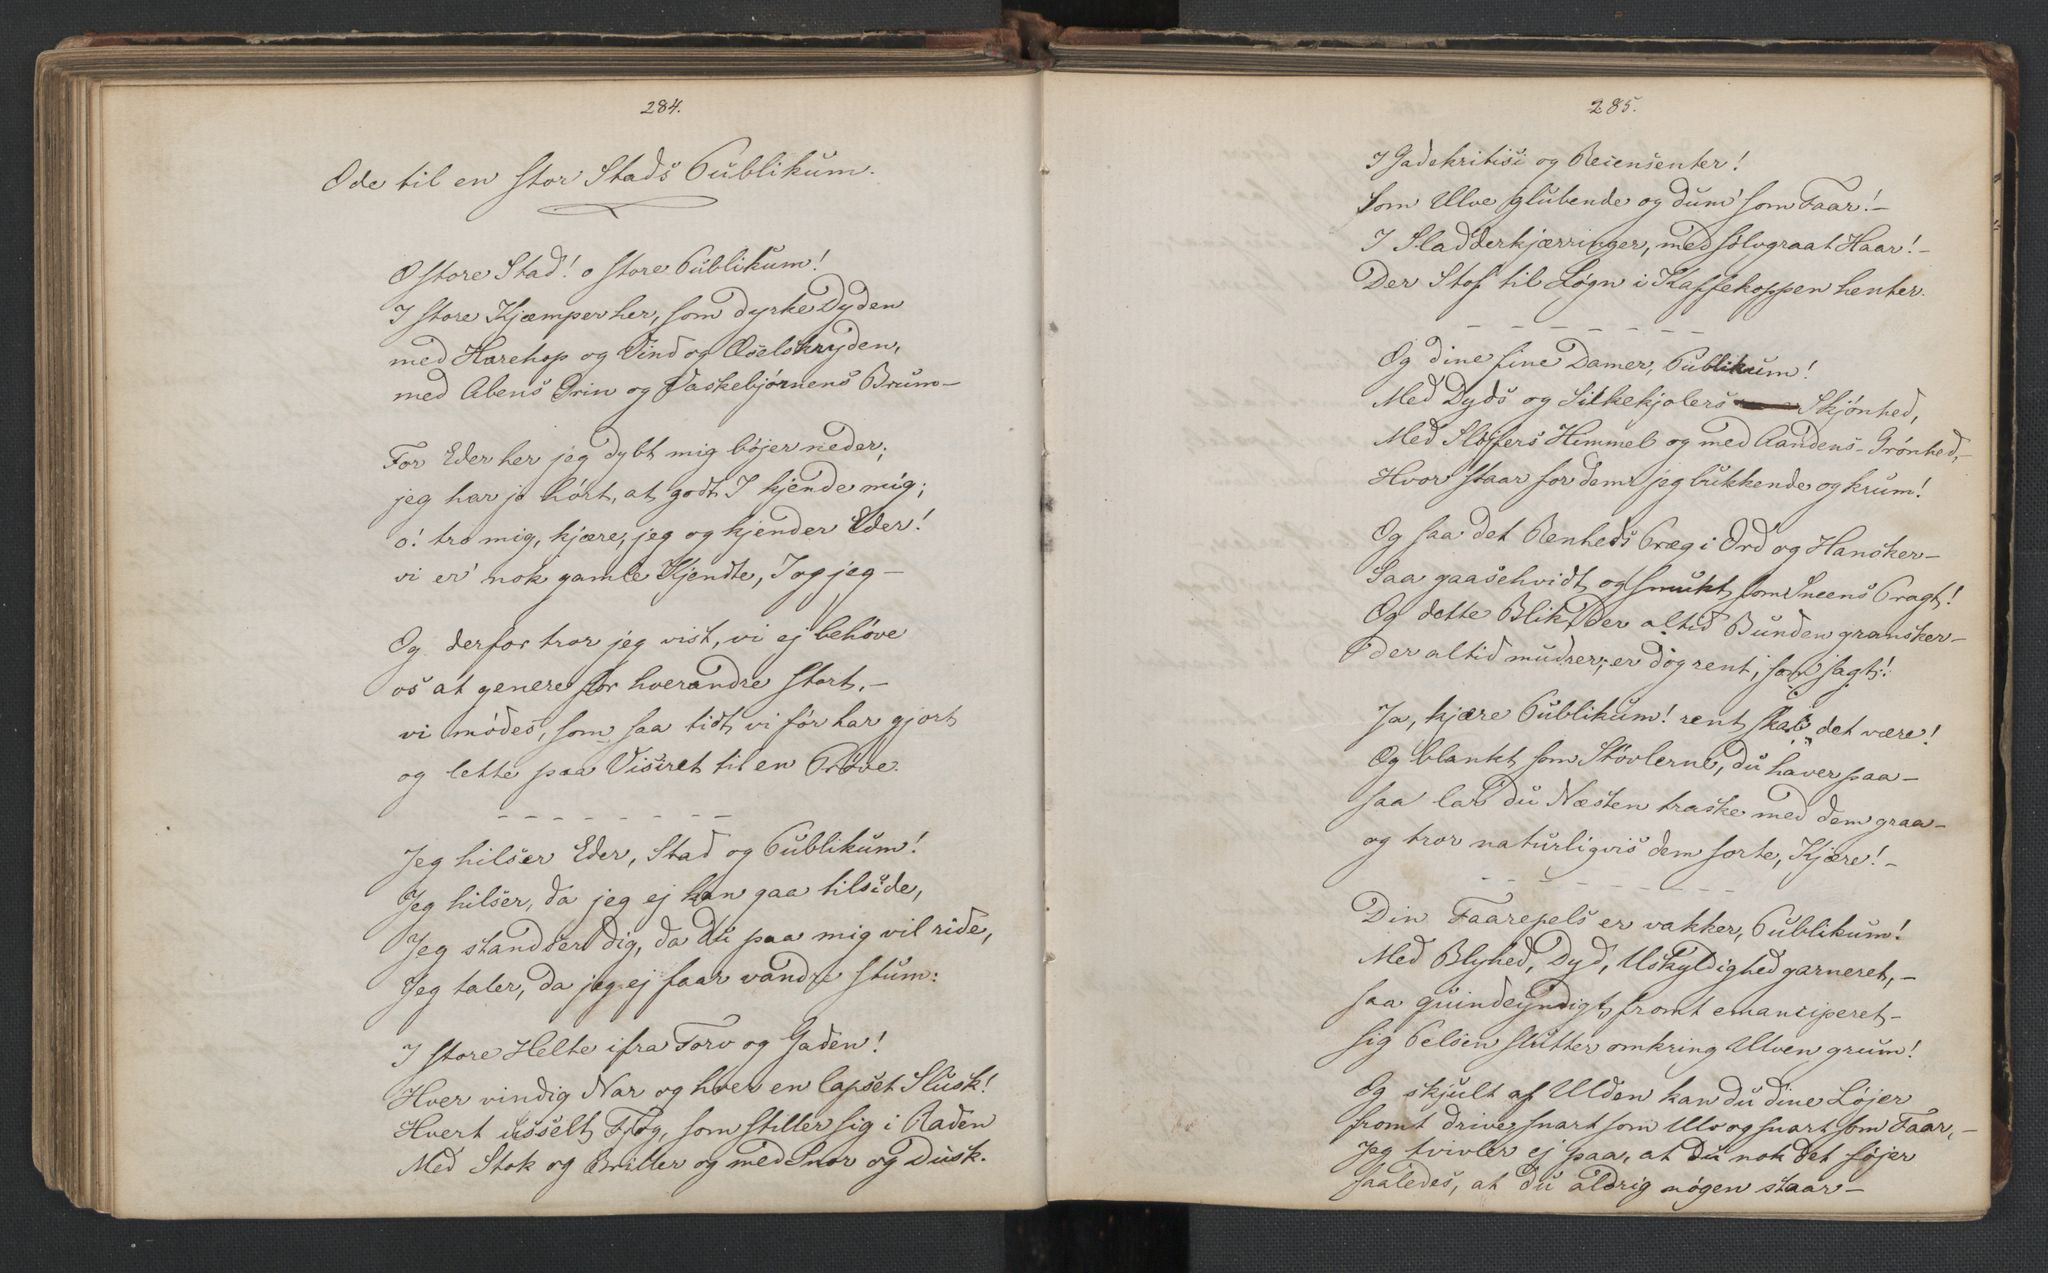 284.
Ode til en stor Stads Publikum.
O store Stad! o store Publikum!
I store Kjæmper her, som dyrke Dyden
med Harehop og Vind og Æselskryden,
med Abens Grin og Vaskebjørnens Brum—
For Eder her jeg dybt mig bøjer neder;
jeg har jo hørt, at godt I kjende mig;
o! tro mig, kjære, jeg og kjender Eder!
vi er' nok gamle Kjendte, I og jeg —
Og derfor tror jeg vist, vi ej behøve
os at genere for hverandre stort, —
vi mødes, som saa tidt vi før har gjort
og lette paa Visiret til en Prøve.
Jeg hilser Eder, Stad og Publikum!
Jeg hilser, da jeg ej kan gaa tilside,
Jeg standser dig, da du paa mig vil ride,
Jeg taler, da jeg ej faar vandre stum:
I store Helte ifra Torv og Gaden!
Hver vindig Nar og hver en lapset Slusk!
Hvert usselt Fjog, som stiller sig i Raden
Med Stok og Briller og med Snor og Dusk.
285.
I Gadekritici og Recensenter!
Som Ulve glubende og dum' som Faar! —
I Sladderkjærringer, med sølvgraat Haar! —
Der Stof til Løgn i Kaffekoppen henter.
Og dine fine Damer, Publikum!
Med Dyds og Silkekjolers Skjønhed,
Med Sløjfers Himmel og med Aandens Grønhed, —
Hvor staar for dem jeg bukkende og krum!
Og saa det Renheds Præg i Ord og Hansker —
Saa gaasehvidt og smukt som Sneens Pragt!
Og dette Blik, der altid Bunden gransker —
der altid mudrer, er dog rent, som sagt!
Ja, kjære Publikum! rent skal det være!
Og blankt som Støvlerne, du haver paa —
saa lar du Næsten traske med dem graa —
og tror naturligvis dem sorte, Kjære! —
Din Faarepels er vakker, Publikum!
Med Blyhed, Dyd, Uskyldighed garneret, —
saa qvindeyndigt, fromt emanciperet —
sig Pelsen slutter omkring Ulven grum!
Og skjult af Ulden kan du dine Løjer
fromt drive snart som Ulv og snart som Faar, —
Jeg tvivler ej paa, at du nok det føjer
saaledes, at du aldrig nøgen staar —